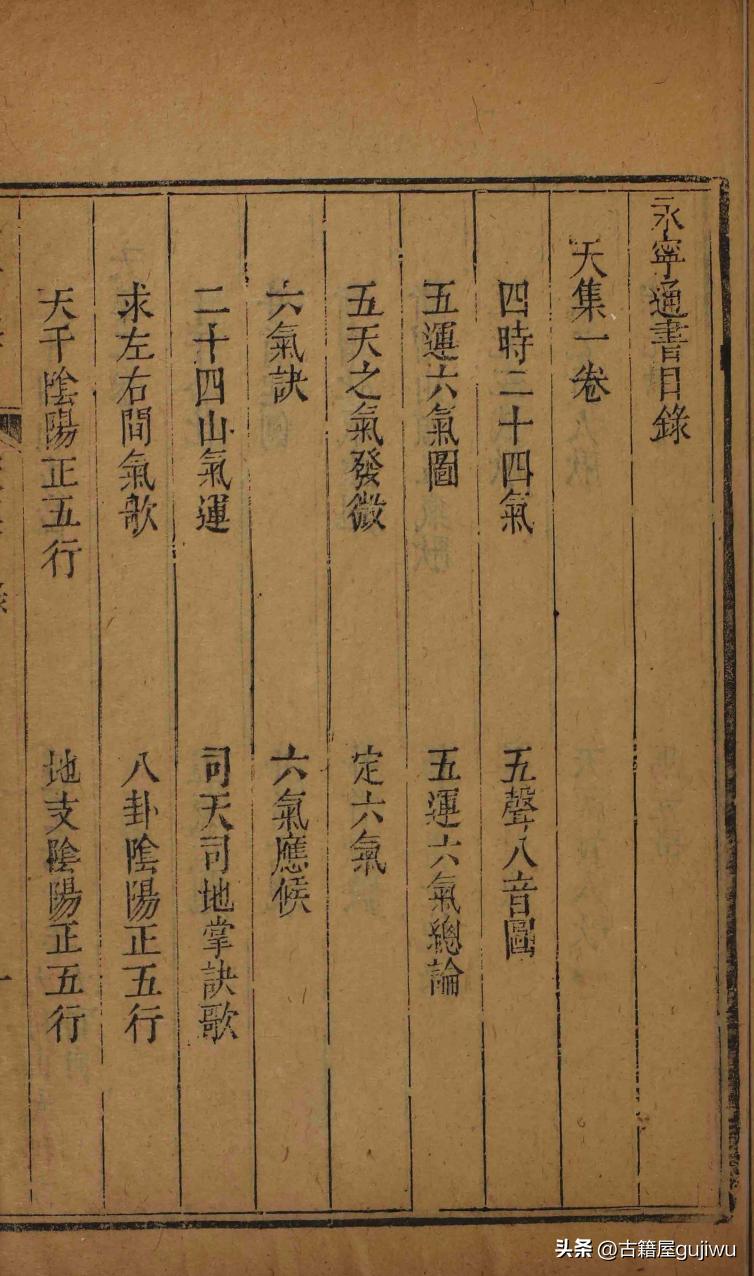 永寧通書目錄
天集一卷
四時二十四氣 五聲八音圖
五運六氣圖 五運六氣總論
五天之氣發微 定六氣
六氣訣 六氣應候
二十四山氣運 司天司地掌訣歌
求左右間氣歌 八卦陰陽正五行
天干陰陽正五行 地支陰陽正五行
头条 @古籍屋gujiwu